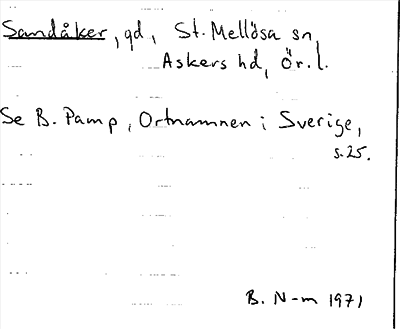 Sandåker, gd, St. Mellösa sn,
Askers hd, Ör. l.
Se B. Pamp, Ortnamnen i Sverige,
s. 25.
B. N-m 1971